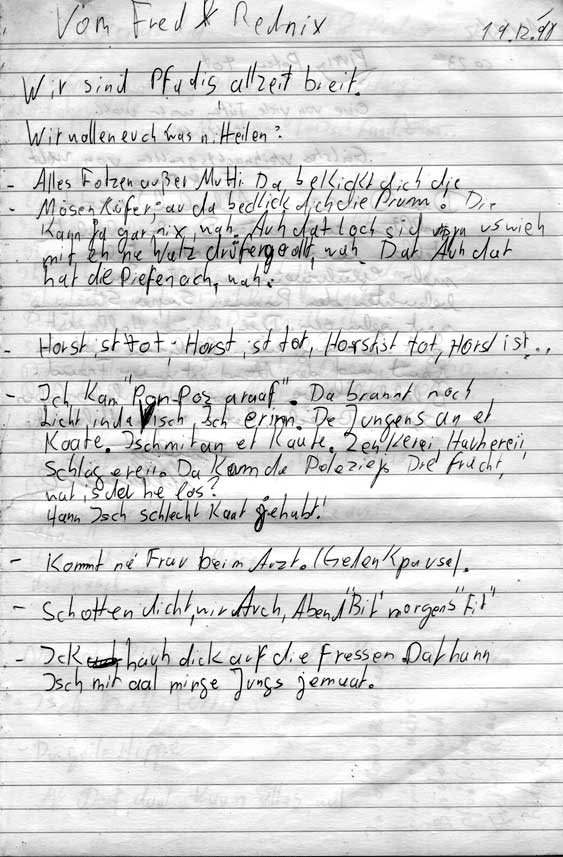 Vom Fred & Rednix
19.12.91
Wir sind Pfadis allzeit breit.
Wir wollen euch was mitteilen?
- Alles Fotzen außer Mutti Da bekickt dich die
- Mösen Käfer, au da bedlick dich die Prumm! Die
kann ja gar nix wah. Auh dat loch sid
mit eh ne wutz drüfer wah. Dat Auh dat
hat die Piefen ach, wah.
- Horst ist tot, Horst ist tot, Horst ist tot, Horst ist...
- Ich kam "Ron-Poz araaf". Da brannt noch
Licht in da Isch erinn. De Jungens an et
Kaate. Isch mit an et Kaute. Zenkerei Hauherei
Schlägereii. Da kam de Polezieg Die frücht,
wat is del he los?
Hann Isch schlecht Kaat gehabt!
- Kommt ne' Frau beim Arzt. (Gedenkpause).
- Schotten dicht, wir Auch, Abend "Bit" morgens "Fit"
- Ick hauh dick auf die Fressen. Dat hann
Isch mit aal minge Jungs jemaat.